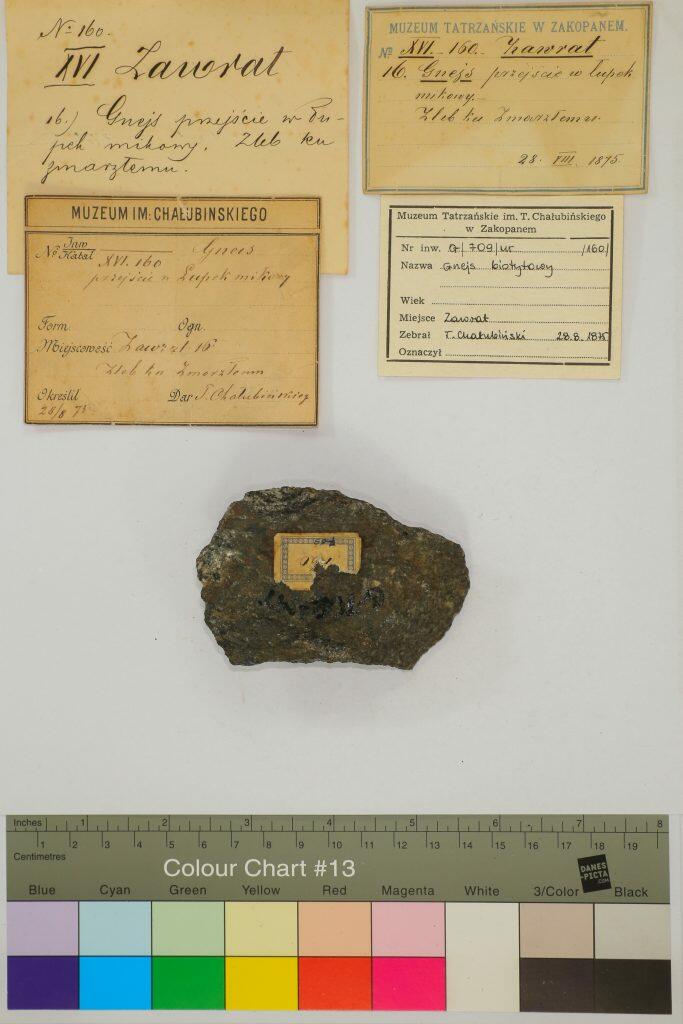 No 160.
XVI Zawrat
16.) Gnejs przejście w Łu-
pek mikowy. Żleb ku
zmarzłemu.
MUZEUM TATRZAŃSKIE W ZAKOPANEM.
No XVI. 160. Zawrat
16. Gnejs przejście w łupek
mikowy.
Żleb ku Zmarzłemu.
28. VIII. 1875.
MUZEUM IM: CHAŁUBINSKIEGO
No Inw Katal XVI. 160 Gneis
przejście w Łupek mikowy
Form. Ogn.
Miejscowość Zawrat 16
Żleb ku Zmarzłemu
Określił Dar T. Chałubińskiego
28/8 75
Muzeum Tatrzańskie im. T. Chałubińskiego
w Zakopanem
Nr inw. G/709/ur /160/
Nazwa Gnejs biotytowy
Wiek
Miejsce Zawrat
Zebrał T. Chałubiński 28.8.1875
Oznaczył
Inches 1 2 3 4 5 6 7 8
1 2 3 4 5 6 7 8 9 10 11 12 13 14 15 16 17 18 19
Centimetres
Colour Chart #13
DANES
-PICTA
.COM
Blue Cyan Green Yellow Red Magenta White 3/Color Black